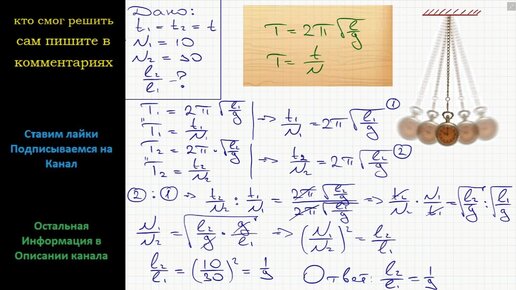 кто смог решить
сам пишите в
комментариях
Ставим лайки
Подписываемся на
Канал
Остальная
Информация в
Описании канала
Дано:
t₁ = t₂ = t
N₁ = 10
N₂ = 30
l₂/l₁ - ?
T = 2π√(l/g)
T = t/N
T₁ = 2π√(l₁/g)
T₁ = t₁/N₁
→ t₁/N₁ = 2π√(l₁/g) ①
T₂ = 2π·√(l₂/g)
T₂ = t₂/N₂
→ t₂/N₂ = 2π√(l₂/g) ②
② : ① → t₂/N₂ : t₁/N₁ = 2π√(l₂/g) / 2π√(l₁/g) => t₂/N₂ · N₁/t₁ = √(l₂/g) : √(l₁/g)
N₁/N₂ = √(l₂/g · g/l₁) => (N₁/N₂)² = l₂/l₁
l₂/l₁ = (10/30)² = 1/9
Ответ: l₂/l₁ = 1/9